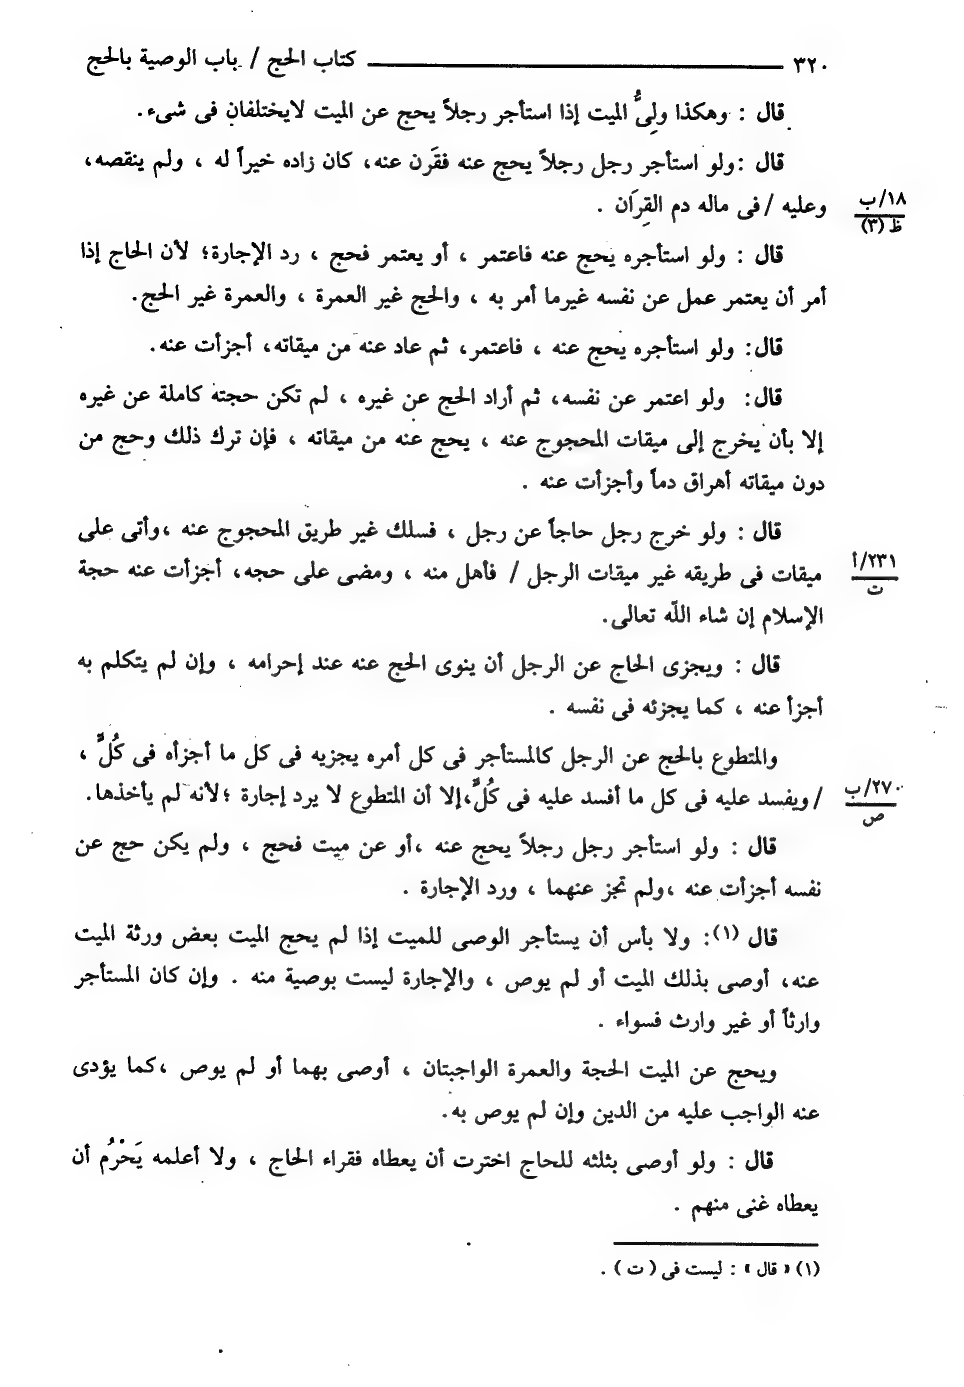 ٣٢٠ ــــــــــ كتاب الحج / باب الوصية بالحج
قال : وهكذا ولىُّ الميت إذا استأجر رجلاً يحج عن الميت لايختلفان فى شىء.
قال :ولو استأجر رجل رجلاً يحج عنه فقَرن عنه، كان زاده خيراً له ، ولم ينقصه،
وعليه / فى ماله دم القِرَان .
١٨/ب
ظ (٣)
قال : ولو استأجره يحج عنه فاعتمر ، أو يعتمر فحج ، رد الإجارة؛ لأن الحاج إذا
أمر أن يعتمر عمل عن نفسه غيرما أمر به ، والحج غير العمرة ، والعمرة غير الحج.
قال: ولو استأجره يحج عنه ، فاعتمر، ثم عاد عنه من ميقاته، أجزأت عنه.
قال: ولو اعتمر عن نفسه، ثم أراد الحج عن غيره ، لم تكن حجته كاملة عن غيره
إلا بأن يخرج إلى ميقات المحجوج عنه ، يحج عنه من ميقاته ، فإن ترك ذلك وحج من
دون ميقاته أهراق دماً وأجزأت عنه .
قال : ولو خرج رجل حاجاً عن رجل ، فسلك غير طريق المحجوج عنه ،وأتى على
ميقات فى طريقه غير ميقات الرجل / فأهل منه ، ومضى على حجه، أجزأت عنه حجة
٢٣١/أ
ت
الإسلام إن شاء اللّه تعالى.
قال : ويجزى الحاج عن الرجل أن ينوى الحج عنه عند إحرامه ، وإن لم يتكلم به
أجزأ عنه ، كما يجزئه فى نفسه .
والمتطوع بالحج عن الرجل كالمستأجر فى كل أمره يجزيه فى كل ما أجزأه فى كُلٍّ ،
/ ويفسد عليه فى كل ما أفسد عليه فى كُلٍّ،إلا أن المتطوع لا يرد إجارة ؛لأنه لم يأخذها.
٢٧٠/ب
ص
قال : ولو استأجر رجل رجلاً يحج عنه ،أو عن ميت فحج ، ولم يكن حج عن
نفسه أجزأت عنه ،ولم تجز عنهما ، ورد الإجارة .
قال (١): ولا بأس أن يستأجر الوصى للميت إذا لم يحج الميت بعض ورثة الميت
عنه، أوصى بذلك الميت أو لم يوص ، والإجارة ليست بوصية منه . وإن كان المستأجر
وارثاً أو غير وارث فسواء .
ويحج عن الميت الحجة والعمرة الواجبتان ، أوصى بهما أو لم يوص ،كما يؤدى
عنه الواجب عليه من الدين وإن لم يوص به.
قال : ولو أوصى بثلثه للحاج اخترت أن يعطاه فقراء الحاج ، ولا أعلمه يَحْرُم أن
يعطاه غنى منهم .
(١) « قال » : ليست فى ( ت ) .